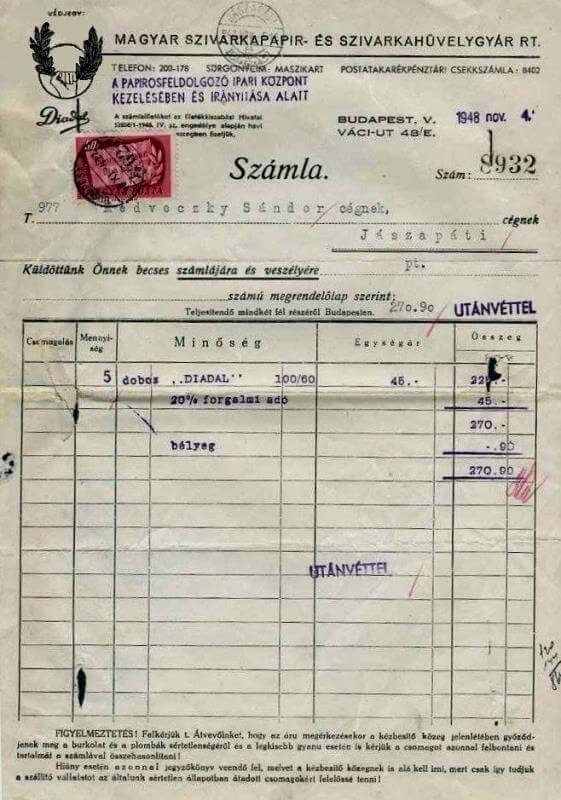 VÉDJEGY:
MAGYAR SZIVARKAPAPIR- ÉS SZIVARKAHÜVELYGYÁR RT.
TELEFON: 200-178 SÜRGÖNYCIM: MASZIKART POSTATAKARÉKPÉNZTÁRI CSEKKSZÁMLA: 8402
A PAPIROSFELDOLGOZÓ IPARI KÖZPONT
KEZELÉSÉBEN ÉS IRÁNYITÁSA ALATT
Diadal
A számlailletéket az Illetékkiszabási Hivatal
engedélye alapján havi
összegben fizetjük.
BUDAPEST, V. 1948 nov. 4.
VÁCI-UT 48/E.
50
MAGYAR POSTA
Számla.
Szám: 8932
977
T. Medveczky Sándor cégnek, cégnek
Jászapáti
Küldöttünk Önnek becses számlájára és veszélyére pt.
számú megrendelőlap szerint:
Teljesítendő mindkét fél részéről Budapesten. 270.90 UTÁNVÉTTEL
Csomagolás Mennyi-ség Minőség Egységár Összeg
5 doboz „DIADAL" 100/60 45.- 225.-
20% forgalmi adó 45.-
270.-
bélyeg -.90
270.90
UTÁNVÉTTEL
FIGYELMEZTETÉS! Felkérjük t. Átvevőinket, hogy az áru megérkezésekor a kézbesitő közeg jelenlétében győződ-
jenek meg a burkolat és a plombák sértetlenségéről és a legkisebb gyanu esetén is kérjük a csomagot azonnal felbontani és
tartalmát a számlával összehasonlitani!
Hiány esetén azonnal jegyzőkönyv veendő fel, melyet a kézbesitő közegnek is alá kell irni, mert csak igy tudjuk
a szállitó vállalatot az általunk sértetlen állapotban átadott csomagokért felelőssé tenni!